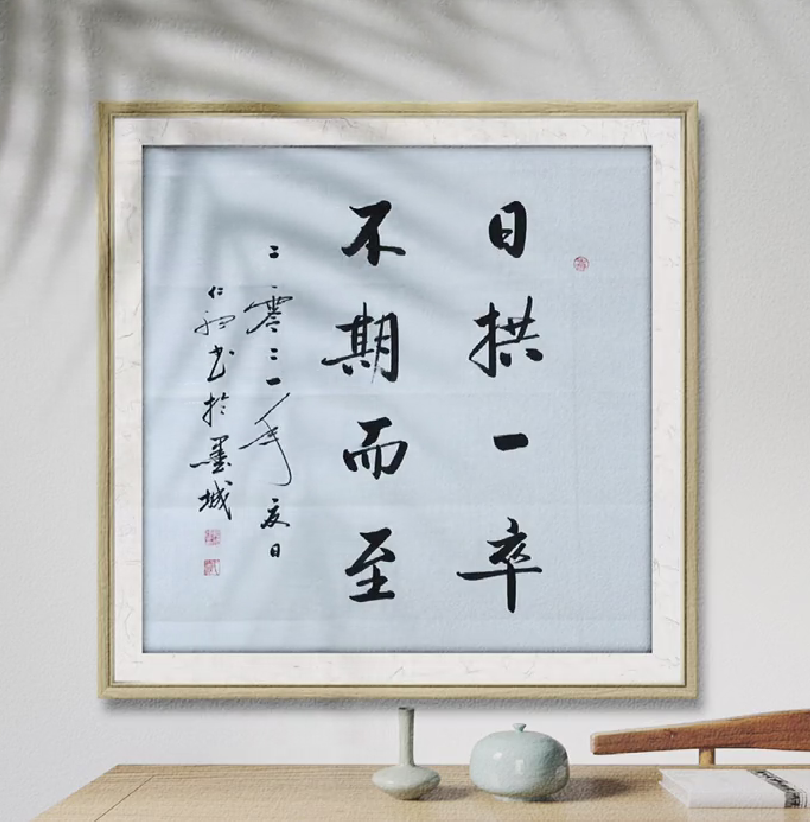 日拱一卒
不期而至
二零二一年夏日
仁书於墨城